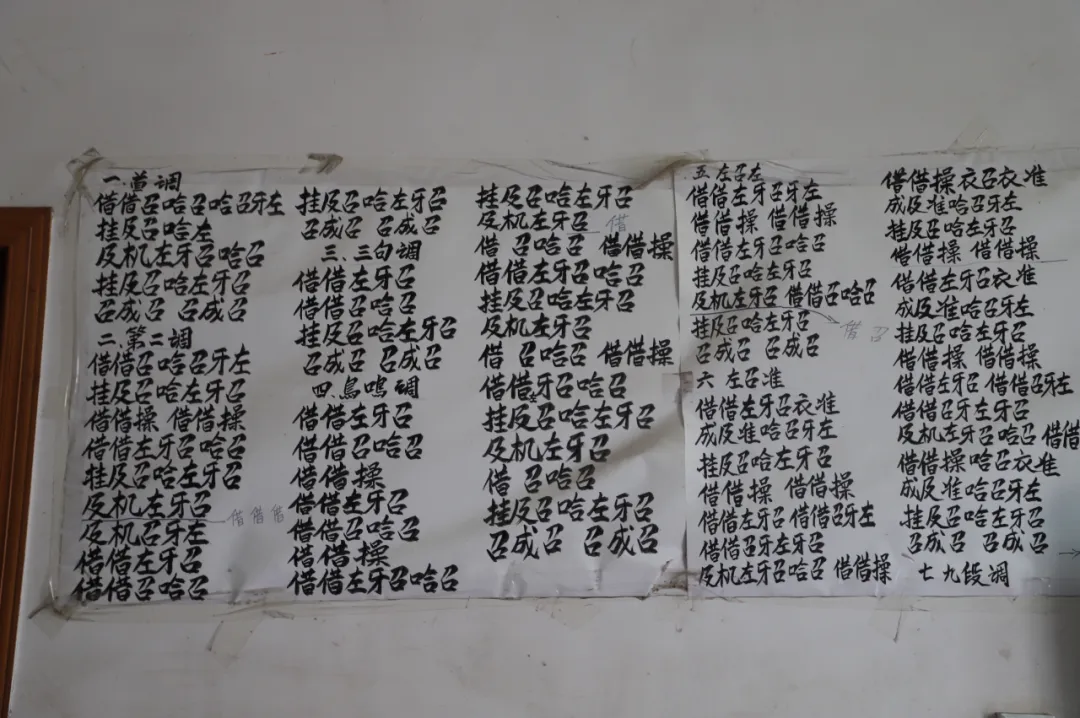 一.首调
借借召哈召哈召牙左
挂及召哈左
及机左牙召哈召
挂及召哈左牙召
召成召 召成召
二.第二调
借借召哈召牙左
挂及召哈左牙召
借借操 借借操
借借左牙召哈召
挂及召哈左牙召
及机左牙召 借借借
及机召牙左
借借左牙召
借借召哈召
挂及召哈左牙召
召成召 召成召
三.三句调
借借左牙召
借借召哈召
挂及召哈左牙召
召成召 召成召
四.鳥鸣调
借借左牙召
借借召哈召
借借操
借借左牙召
借借召哈召
借借操
借借左牙召哈召
挂及召哈左牙召
及机左牙召 借
借 召哈召 借借操
借借左牙召哈召
挂及召哈左牙召
及机左牙召
借 召哈召 借借操
借借牙召哈召
挂及召哈左牙召
及机左牙召
借 召哈召
挂及召哈左牙召
召成召 召成召
五 左召左
借借左牙召牙左
借借操 借借操
借借左牙召哈召
挂及召哈左牙召
及机左牙召 借借召哈召
挂及召哈左牙召 借召
召成召 召成召
六 左召准
借借左牙召衣准
成及准哈召牙左
挂及召哈左牙召
借借操 借借操
借借左牙召 借借召牙左
借借召牙左牙召
及机左牙召哈召 借借操
借借操衣召衣准
成及准哈召牙左
挂及召哈左牙召
借借操 借借操
借借左牙召衣准
成及准哈召牙左
挂及召哈左牙召
借借操 借借操
借借左牙召 借借召牙左
借借召牙左牙召
及机左牙召哈召 借借
借借操哈召衣准
成及准哈召牙左
挂及召哈左牙召
召成召 召成召
七 九段调